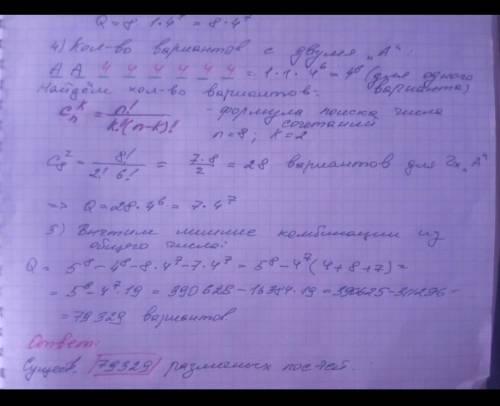 Q = 8 · 1 · 4⁷ = 8 · 4⁷
4) Кол-во вариантов с двумя „А“:
А А 4 4 4 4 4 4 = 1·1·4⁶ = 4⁶ (для одного варианта)
Найдём кол-во вариантов:
Cₙᵏ = n! / k!(n-k)! - формула поиска числа сочетаний
n = 8; k = 2
C₈² = 8! / 2! 6! = 7·8 / 2 = 28 вариантов для 2х „А“
=> Q = 28 · 4⁶ = 7 · 4⁷
5) Вычтем лишние комбинации из общего числа:
Q = 5⁸ - 4⁸ - 8·4⁷ - 7·4⁷ = 5⁸ - 4⁷ (4+8+7) =
= 5⁸ - 4⁷ · 19 = 390625 - 16384 · 19 = 390625 - 311296 =
= 79329 вариантов
Ответ:
Существ. 79329 различных